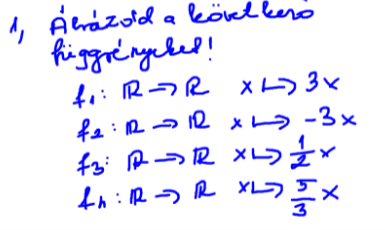 1, Ábrázold a következő
függvényeket!
f₁: ℝ → ℝ x ↦ 3x
f₂: ℝ → ℝ x ↦ -3x
f₃: ℝ → ℝ x ↦ 1/2 x
f₄: ℝ → ℝ x ↦ 5/3 x